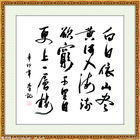 白日依山尽
黄河入海流
欲窮千里目
更上一層樓